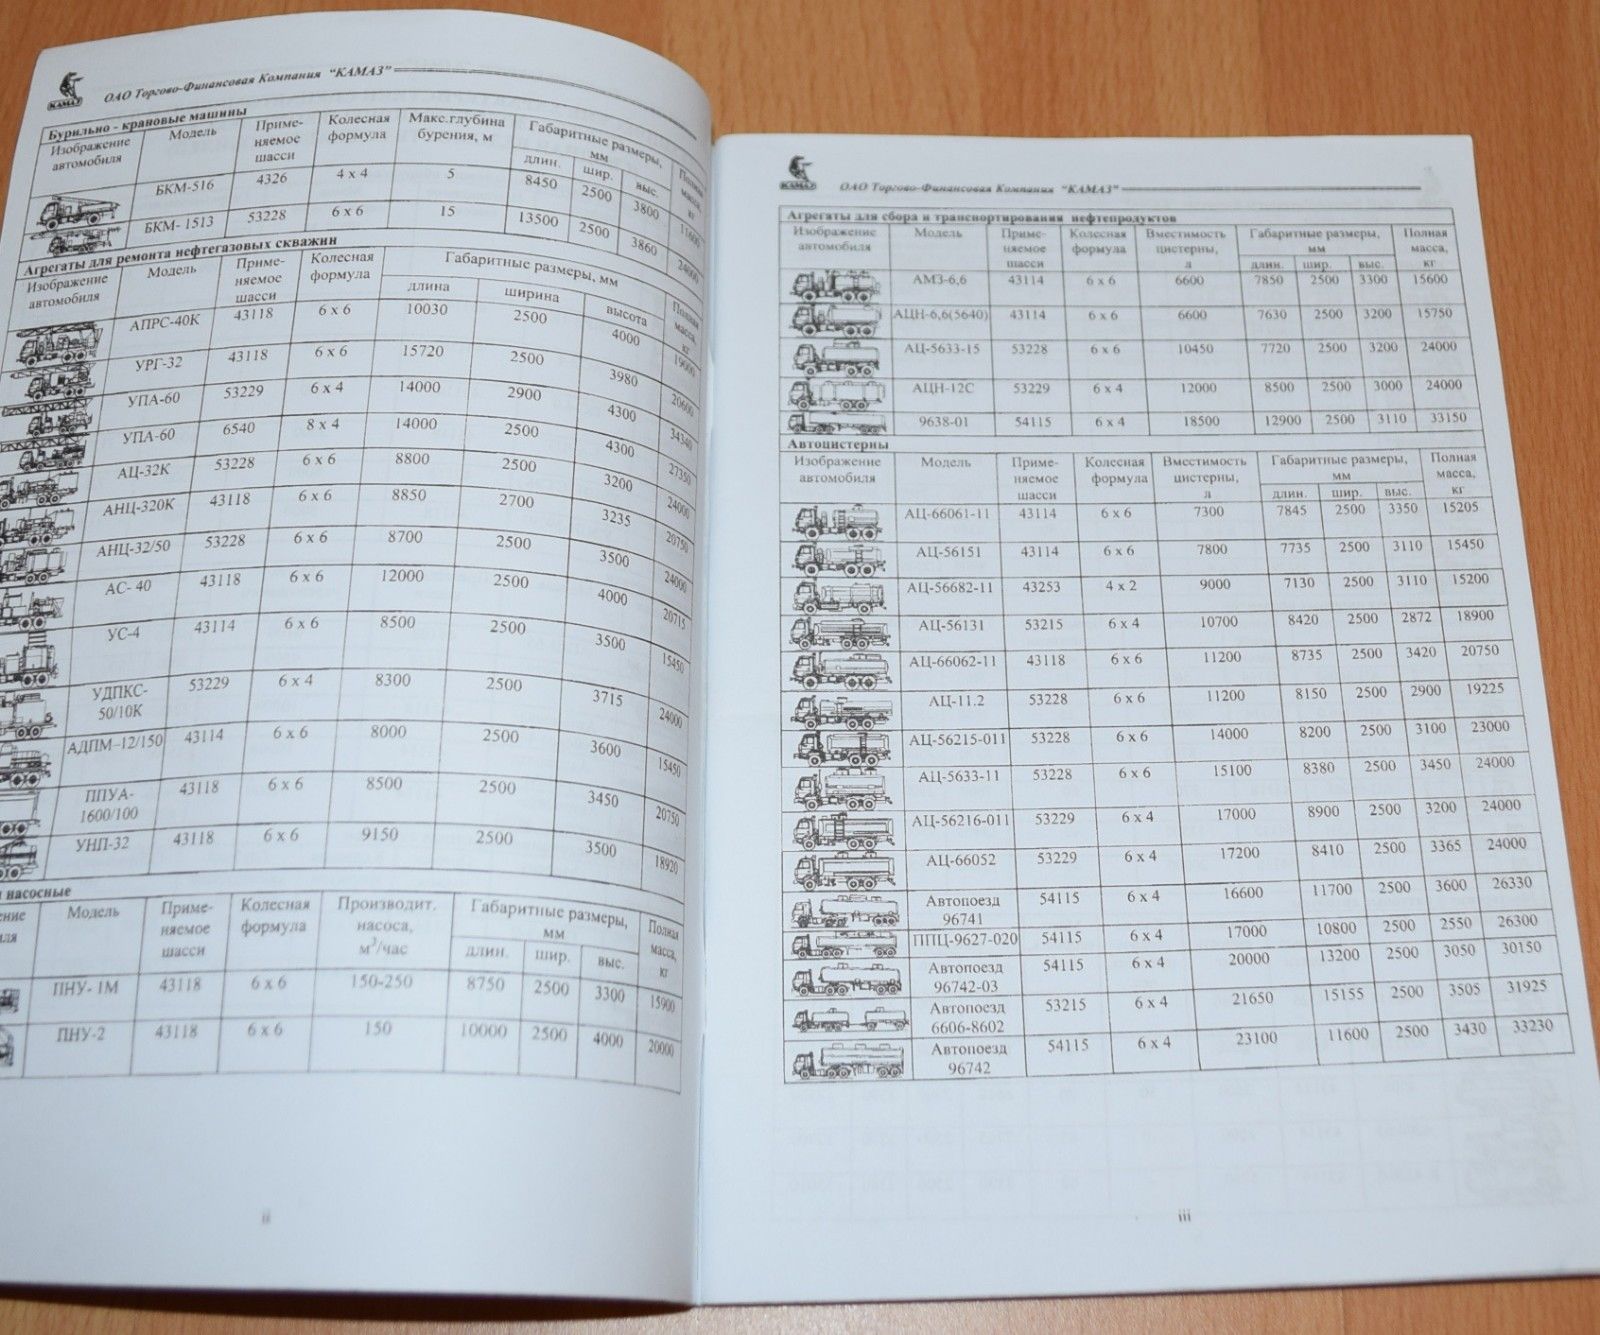 КАМАЗ
ОАО Торгово-Финансовая Компания "КАМАЗ"
Бурильно - крановые машины
Изображение автомобиля Модель Приме-няемое шасси Колесная формула Макс.глубина бурения, м Габаритные размеры, мм Полная масса, кг
длин. шир. выс.
БКМ-516 4326 4 x 4 5 8450 2500 3800 11600
БКМ- 1513 53228 6 x 6 15 13500 2500 3860 24000
Агрегаты для ремонта нефтегазовых скважин
Изображение автомобиля Модель Приме-няемое шасси Колесная формула Габаритные размеры, мм Полная масса, кг
длина ширина высота
АПРС-40К 43118 6 x 6 10030 2500 4000 19000
УРГ-32 43118 6 x 6 15720 2500 3980 20600
УПА-60 53229 6 x 4 14000 2900 4300 34340
УПА-60 6540 8 x 4 14000 2500 4300 27350
АЦ-32К 53228 6 x 6 8800 2500 3200 24000
АНЦ-320К 43118 6 x 6 8850 2700 3235 20750
АНЦ-32/50 53228 6 x 6 8700 2500 3500 24000
АС- 40 43118 6 x 6 12000 2500 4000 20715
УС-4 43114 6 x 6 8500 2500 3500 15450
УДПКС-50/10К 53229 6 x 4 8300 2500 3715 24000
АДПМ–12/150 43114 6 x 6 8000 2500 3600 15450
ППУА-1600/100 43118 6 x 6 8500 2500 3450 20750
УНП-32 43118 6 x 6 9150 2500 3500 18920
насосные
Модель Приме-няемое шасси Колесная формула Производит. насоса, м³/час Габаритные размеры, мм Полная масса, кг
длин. шир. выс.
ПНУ- 1М 43118 6 x 6 150-250 8750 2500 3300 15900
ПНУ-2 43118 6 x 6 150 10000 2500 4000 20000
ii
КАМАЗ
ОАО Торгово-Финансовая Компания "КАМАЗ"
Агрегаты для сбора и транспортирования нефтепродуктов
Изображение автомобиля Модель Приме-няемое шасси Колесная формула Вместимость цистерны, л Габаритные размеры, мм Полная масса, кг
длин. шир. выс.
АМЗ-6,6 43114 6 x 6 6600 7850 2500 3300 15600
АЦН-6,6(5640) 43114 6 x 6 6600 7630 2500 3200 15750
АЦ-5633-15 53228 6 x 6 10450 7720 2500 3200 24000
АЦН-12С 53229 6 x 4 12000 8500 2500 3000 24000
9638-01 54115 6 x 4 18500 12900 2500 3110 33150
Автоцистерны
Изображение автомобиля Модель Приме-няемое шасси Колесная формула Вместимость цистерны, л Габаритные размеры, мм Полная масса, кг
длин. шир. выс.
АЦ-66061-11 43114 6 x 6 7300 7845 2500 3350 15205
АЦ-56151 43114 6 x 6 7800 7735 2500 3110 15450
АЦ-56682-11 43253 4 x 2 9000 7130 2500 3110 15200
АЦ-56131 53215 6 x 4 10700 8420 2500 2872 18900
АЦ-66062-11 43118 6 x 6 11200 8735 2500 3420 20750
АЦ-11.2 53228 6 x 6 11200 8150 2500 2900 19225
АЦ-56215-011 53228 6 x 6 14000 8200 2500 3100 23000
АЦ-5633-11 53228 6 x 6 15100 8380 2500 3450 24000
АЦ-56216-011 53229 6 x 4 17000 8900 2500 3200 24000
АЦ-66052 53229 6 x 4 17200 8410 2500 3365 24000
Автопоезд 96741 54115 6 x 4 16600 11700 2500 3600 26330
ППЦ-9627-020 54115 6 x 4 17000 10800 2500 2550 26300
Автопоезд 96742-03 54115 6 x 4 20000 13200 2500 3050 30150
Автопоезд 6606-8602 53215 6 x 4 21650 15155 2500 3505 31925
Автопоезд 96742 54115 6 x 4 23100 11600 2500 3430 33230
iii